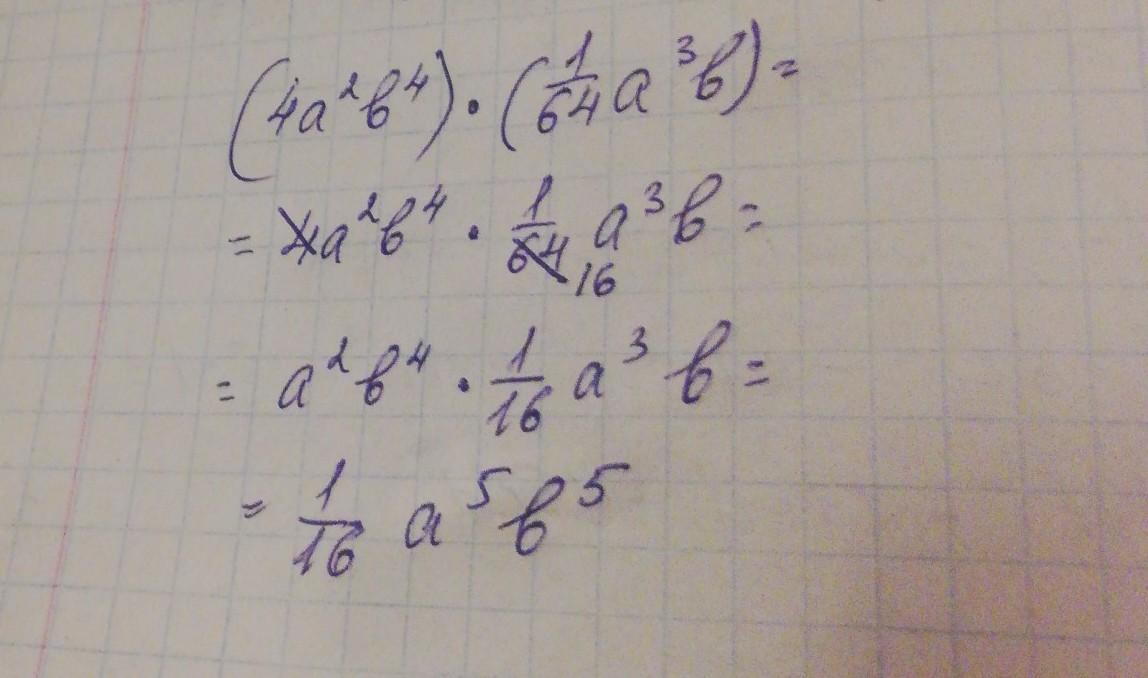 (4a²b⁴)·(1/64 a³b)=
= 4a²b⁴ · 1/64 16 a³b =
= a²b⁴ · 1/16 a³ b =
= 1/16 a⁵b⁵